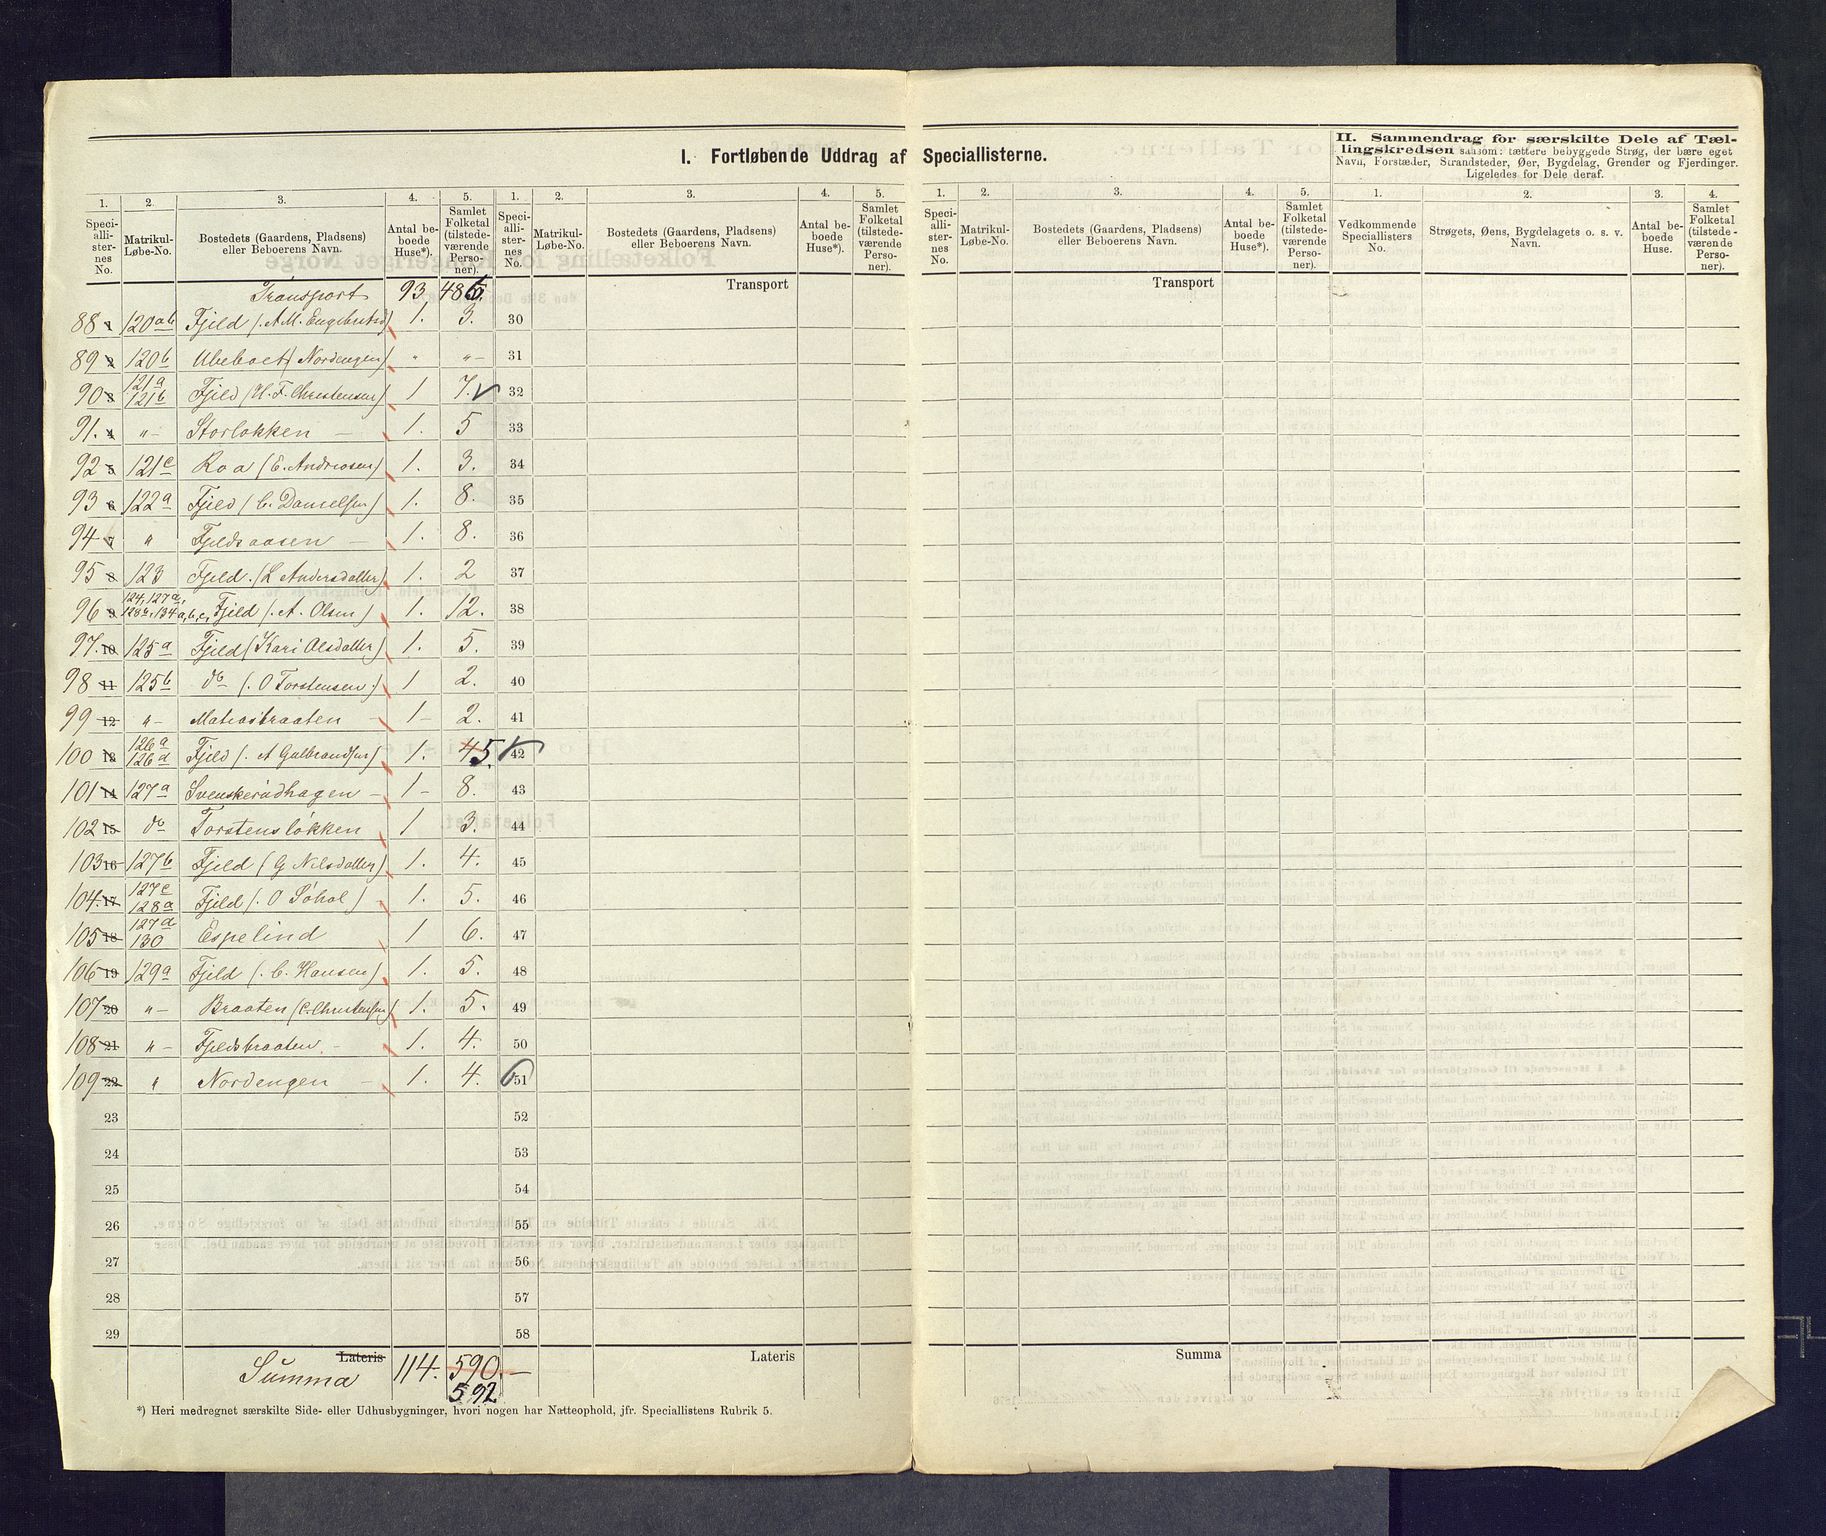 I. Fortløbende Uddrag af Speciallisterne.
II. Sammendrag for særskilte Dele af Tæl-
lingskredsen saasom: tættere bebyggede Strøg, der bære eget
Navn, Forstæder, Strandsteder, Øer, Bygdelag, Grender og Fjerdinger.
Ligeledes for Dele deraf.
1. 2. 3. 4. 5. 1. 2. 3. 4. 5. 1. 2. 3. 4. 5. 1. 2. 3. 4.
Speci-
allli-
ster-
nes
No.
Matrikul-
Løbe-No.
Bostedets (Gaardens, Pladsens)
eller Beboerens Navn.
Antal be-
boede
Huse*).
Samlet
Folketal
(tilstede-
værende
Perso-
ner).
Speci-
alli-
ster-
nes
No.
Matrikul-
Løbe-No.
Bostedets (Gaardens, Pladsens)
eller Beboerens Navn.
Antal be-
boede
Huse*).
Samlet
Folketal
(tilstede-
værende
Perso-
ner).
Speci-
alli-
ster-
nes
No.
Matrikul-
Løbe-No.
Bostedets (Gaardens, Pladsens)
eller Beboerens Navn.
Antal be-
boede
Huse*).
Samlet
Folketal
(tilstede-
værende
Perso-
ner).
Vedkommende
Speciallisters
No.
Strøgets, Øens, Bygdelagets o. s. v.
Navn.
Antal
beboede
Huse.
Samlet
Folketal
(tilstede-
værende
Perso-
ner).
Transport 93 486 Transport Transport
88 1 120ab Fjeld (. A M. Engebretsd) 1. 3. 30
89 2 120b Ubeboet (Nordengen) " "- 31
90 3 121a 121b Fjeld (H. F. Christensen) 1 7. 32
91. 4 "- Storløkken - 1. 5 33
92 5 121c Roa (E. Andresen) 1. 3. 34
93 6 122a Fjeld (C. Danielsen) 1. 8. 35
94 7 " Fjeldsaasen - 1. 8. 36
95 8 123 Fjeld. (L Andersdatter) 1. 2 37
96 9 124, 127a, 128a, 134a,b,c, Fjeld (. A. Olsen) 1. 12. 38
97. 10 125a Fjeld (Kari Olsdatter) 1. 5. 39
98 11 125b do (. O Torstensen.) 1 2. 40
99 12 "- Matiasbraaten - 1- 2. 41
100 13 126a 126d Fjeld (. A Gulbrandsen) 1. 4 5. 42
101 14 127a Svenskerudhagen - 1- 8. 43
102 15 do Torstensløkken 1 3. 44
103 16 127b Fjeld (G Nilsdatter) 1. 4. 45
104. 17 127c 128a Fjeld (. O Søhol) - 1. 5. 46
105 18 127d 130 Espelind 1 6. 47
106 19 129a Fjeld (. C. Hansen) 1. 5. 48
107 20 "- Braaten (C. Christensen) 1. 5. 49
108 21 "- Fjeldsbraaten. - 1. 4. 50
109 22 " Nordengen - 1. 4. 51
23 52
24 53
25 54
26 55
27 56
28 57
29 58
Lateris Summa 114. 590 - Lateris Summa
592
*) Heri medregnet særskilte Side- eller Udhusbygninger, hvori nogen har Natteophold, jfr. Speciallistens Rubrik 5.